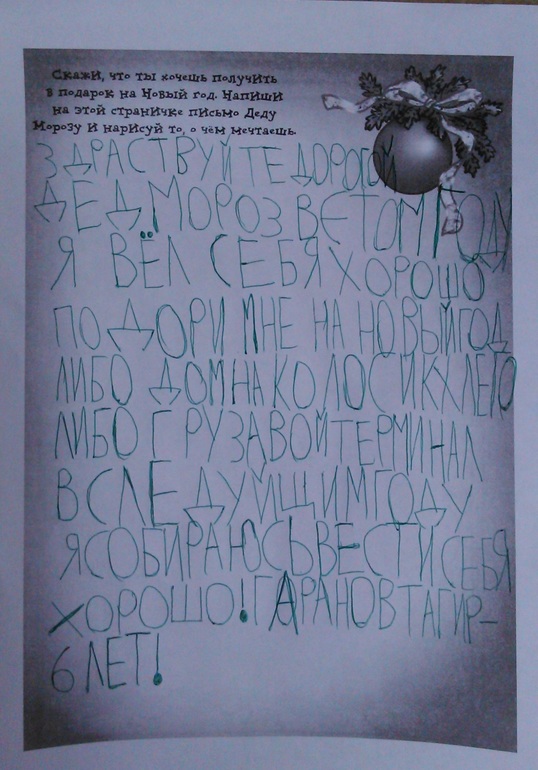 Скажи, что ты хочешь получить
в подарок на Новый год. Напиши
на этой страничке письмо Деду
Морозу и нарисуй то, о чём мечтаешь.
ЗДРАСТВУЙТЕ ДОРОГОЙ
ДЕД МОРОЗ В ЕТОМ ГОДУ
Я ВЁЛ СЕБЯ ХОРОШО
ПОДОРИ МНЕ НА НОВЫЙ ГОД
ЛИБО ДОМ НА КОЛОСИКХ ЛЕГО
ЛИБО ГРУЗАВОЙ ТЕРМИНАЛ
В СЛЕДУЙЩИМ ГОДУ
Я СОБИРАЮСЬ ВЕСТИ СЕБЯ
ХОРОШО! ГАРАНОВ ТАГИР-
6 ЛЕТ!